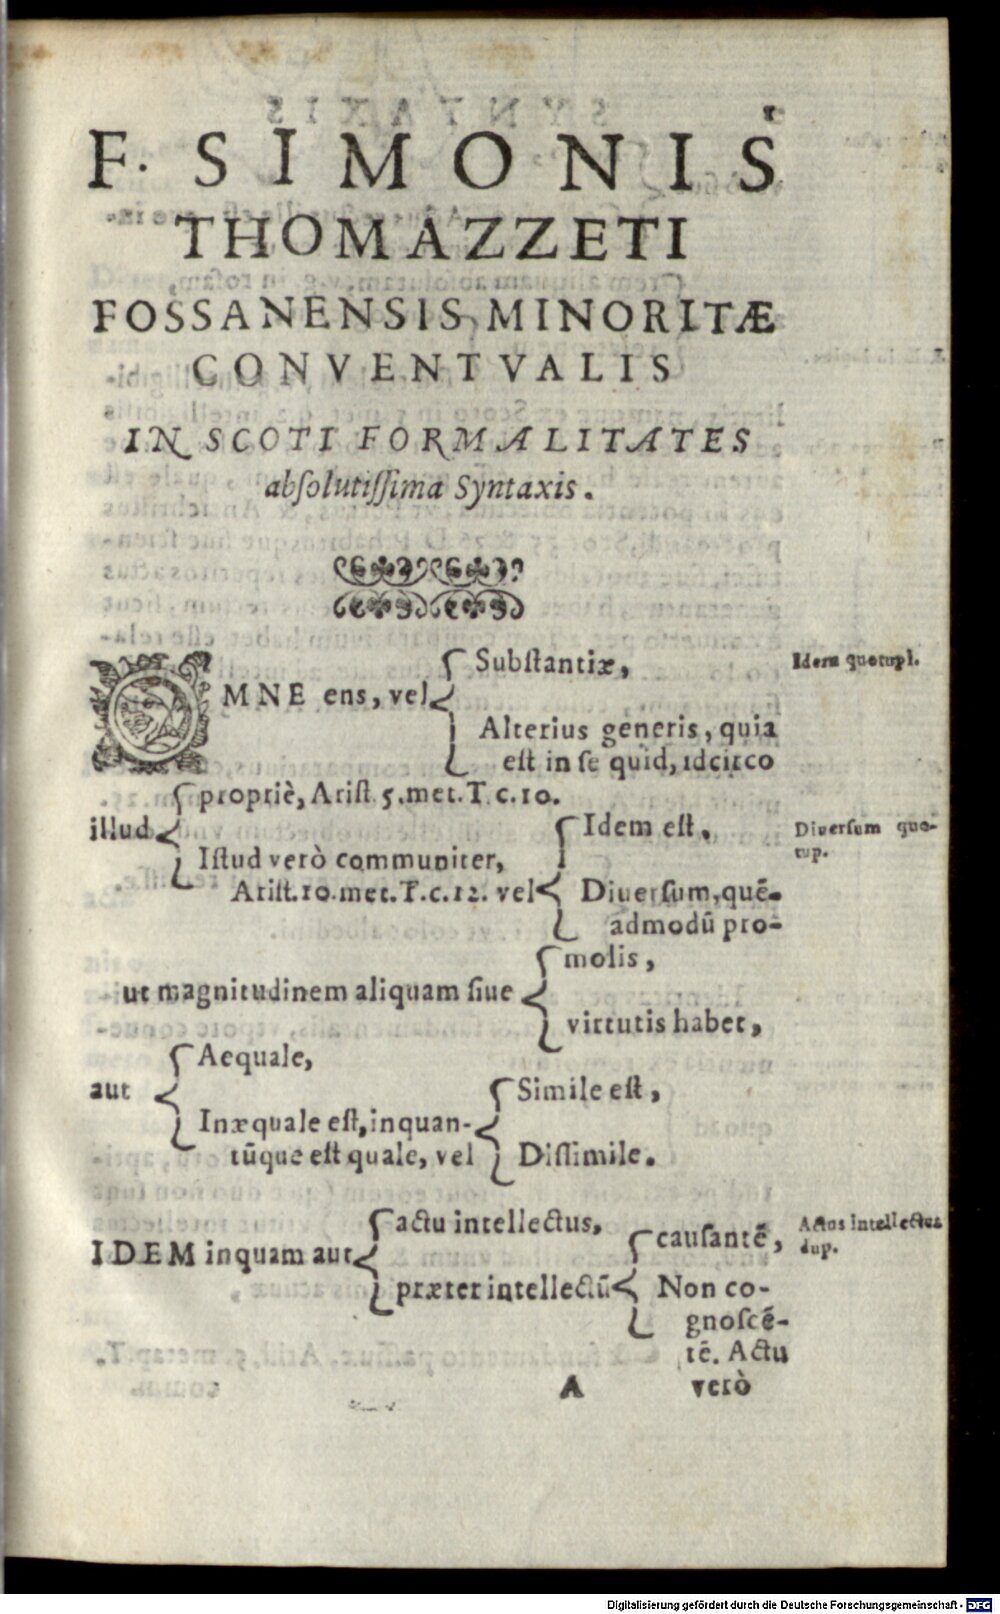 F. SIMONIS
THOMAZZETI
FOSSANENSIS MINORITÆ
CONVENTVALIS
IN SCOTI FORMALITATES
absolutissima Syntaxis.
Substantiæ,
Idem quotupl.
OMNE ens, vel
Alterius generis, quia
est in se quid, idcirco
propriè, Arist. 5. met. T. c. 10.
illud
Idem est,
Diversum quo-
tup.
Istud verò communiter,
Arist. 10. met. T. c. 12. vel
Diuersum, quē-
admodū pro-
molis,
ut magnitudinem aliquam siue
virtutis habet,
Aequale,
aut
Simile est,
Inæquale est, inquan-
tūque est quale, vel
Dissimile.
actu intellectus,
Actus intellectus
dup.
causantē,
IDEM inquam aut
præter intellectū
Non co-
gnoscē-
tē. Actu
A verò
Digitalisierung gefördert durch die Deutsche Forschungsgemeinschaft - DFG